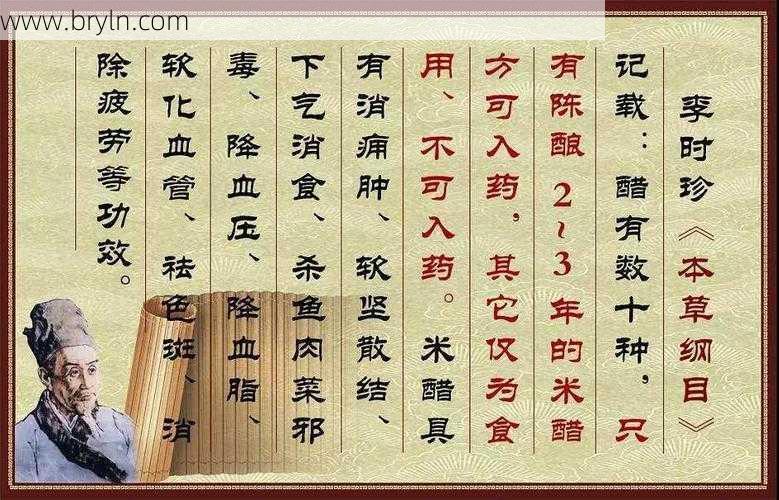 www.bryln.com
李时珍《本草纲目》
记载：醋有数十种，只
有陈酿2~3年的米醋
方可入药，其它仅为食
用、不可入药。米醋具
有消痈肿、软坚散结、
下气消食、杀鱼肉菜邪
毒、降血压、降血脂、
软化血管、祛色斑、消
除疲劳等功效。